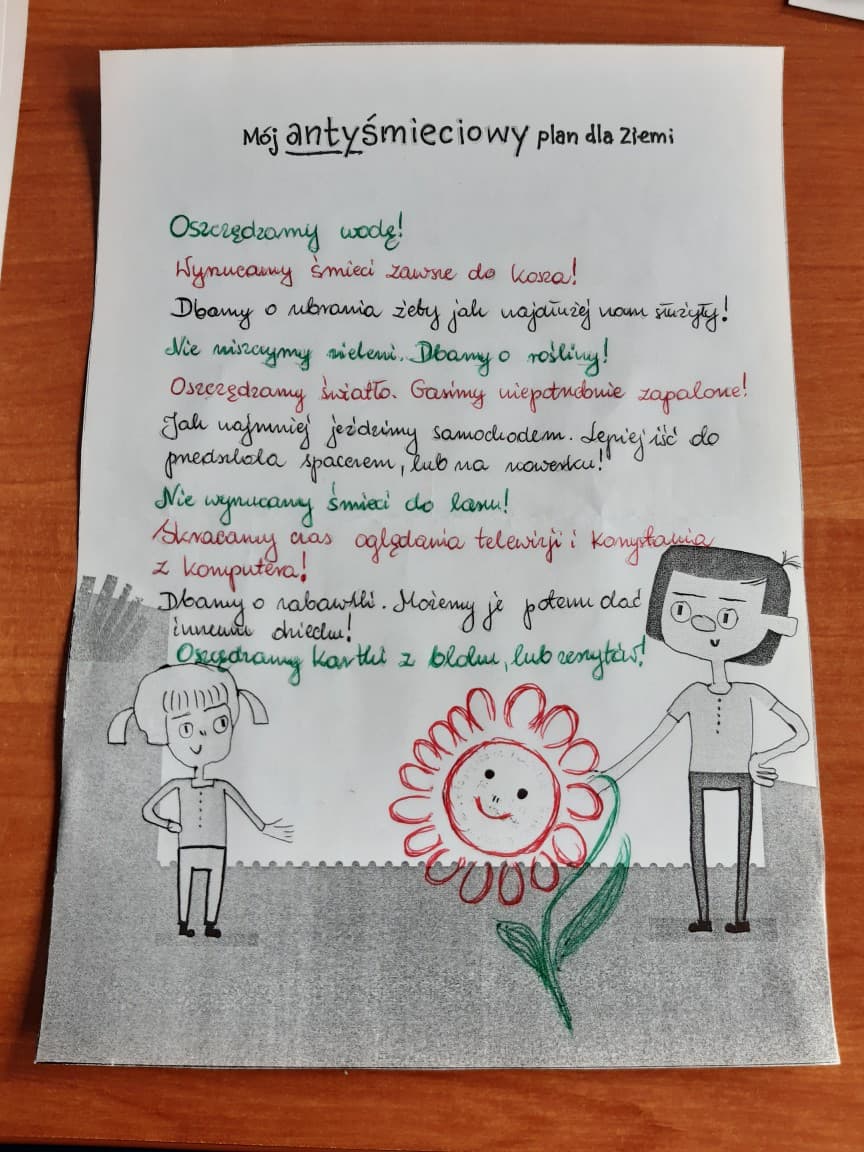 Mój antyśmieciowy plan dla Ziemi
Oszczędzamy wodę!
Wyrzucamy śmieci zawsze do kosza!
Dbamy o ubrania żeby jak najdłużej nam służyły!
Nie niszczymy zieleni. Dbamy o rośliny!
Oszczędzamy światło. Gasimy niepotrzebnie zapalone!
Jak najmniej jeździmy samochodem. Lepiej iść do
przedszkola spacerem, lub na rowerku!
Nie wyrzucamy śmieci do lasu!
Skracamy czas oglądania telewizji i korzystania
z komputera!
Dbamy o zabawki. Możemy je potem dać
innemu dziecku!
Oszczędzamy kartki z bloku, lub zeszytów!